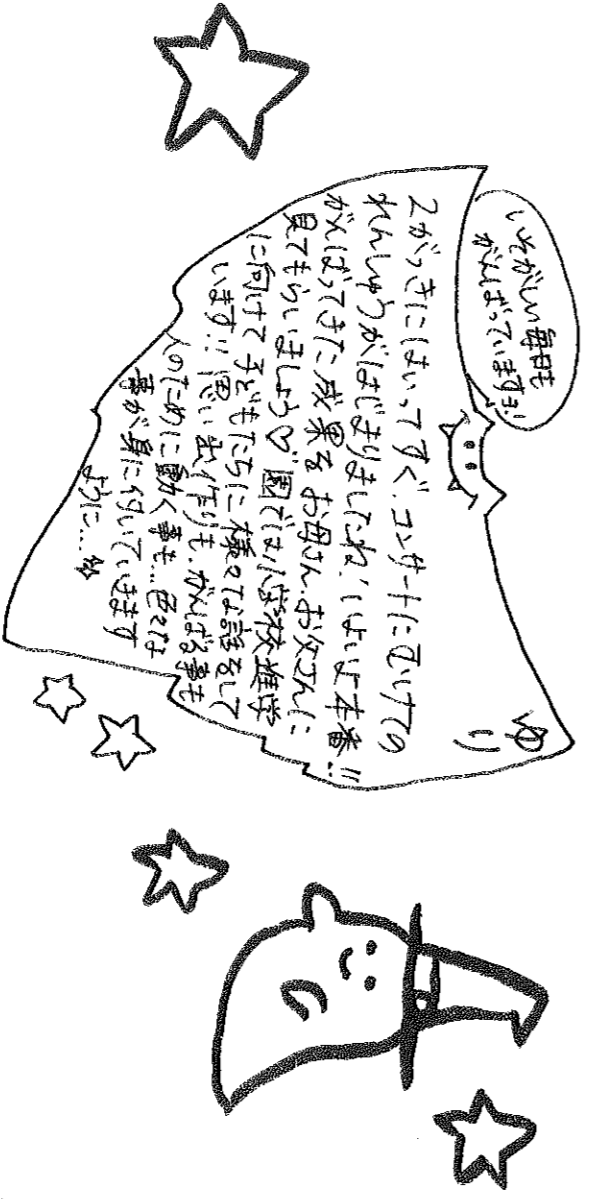 いそがしい毎日も
がんばっています!!
ゆり
2がっきにはいってすぐ、コンサートにむけての
れんしゅうがはじまりましたね!いよいよ本番!!
がんばってきた成果を お母さん、お父さんに
見てもらいましょう♡ 園では小学校進学
に向けて子どもたちに様々な話をして
います!! 思い出作りも、がんばる事も
人のために動く事も…色々な
事が身に付いていきます
ように…